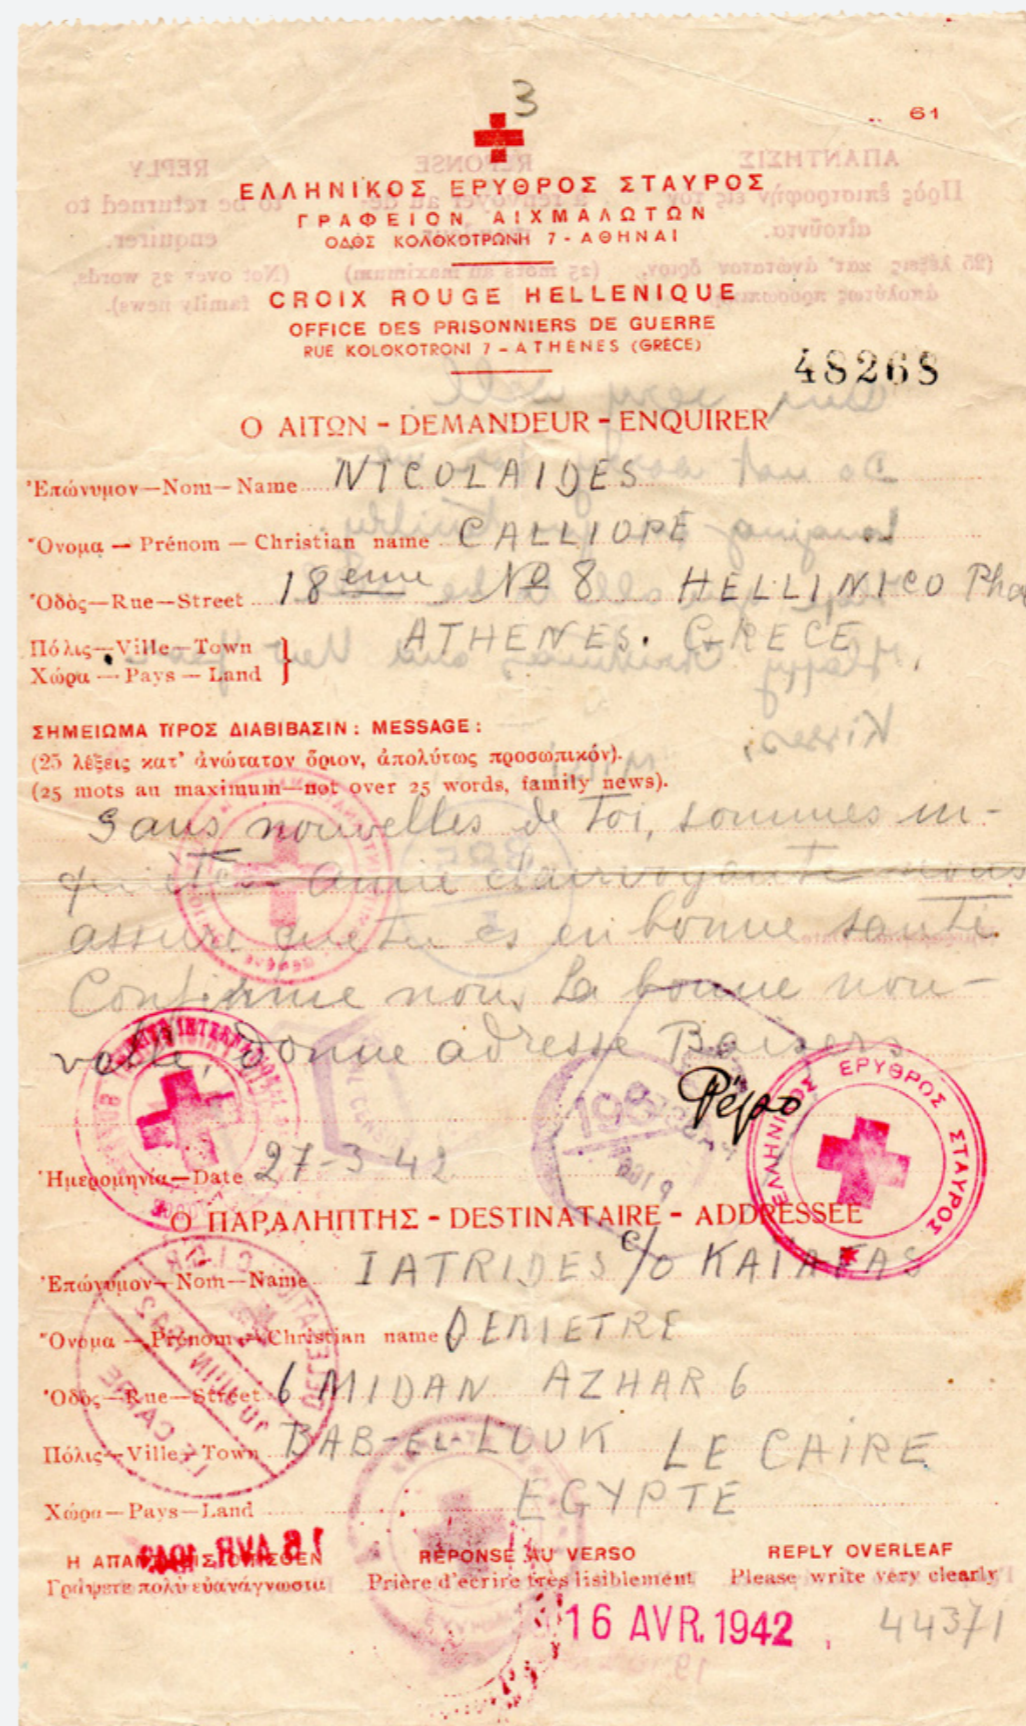 3
61
ΕΛΛΗΝΙΚΟΣ ΕΡΥΘΡΟΣ ΣΤΑΥΡΟΣ
ΓΡΑΦΕΙΟΝ ΑΙΧΜΑΛΩΤΩΝ
ΟΔΟΣ ΚΟΛΟΚΟΤΡΩΝΗ 7 - ΑΘΗΝΑΙ
CROIX ROUGE HELLENIQUE
OFFICE DES PRISONNIERS DE GUERRE
RUE KOLOKOTRONI 7 - ATHÈNES (GRÈCE)
48268
Ο ΑΙΤΩΝ - DEMANDEUR - ENQUIRER
Ἐπώνυμον—Nom—Name NICOLAIDES
Ὄνομα — Prénom — Christian name CALLIOPE
Ὁδὸς—Rue—Street 18eme No 8 HELLINICO
Πόλις—Ville—Town ATHENES. GRECE
Χώρα — Pays — Land
ΣΗΜΕΙΩΜΑ ΠΡΟΣ ΔΙΑΒΙΒΑΣΙΝ : MESSAGE :
(25 λέξεις κατ' ἀνώτατον ὅριον, ἀπολύτως προσωπικόν).
(25 mots au maximum—not over 25 words, family news).
Sans nouvelles de Toi, sommes in-
quiets Amie clairvoyante nous
assure que tu es en bonne santé.
Confirme nous la bonne nou-
velle, donne adresse Baisers
Ἡμερομηνία—Date 27-3-42
ΕΛΛΗΝΙΚΟΣ ΕΡΥΘΡΟΣ ΣΤΑΥΡΟΣ
Ο ΠΑΡΑΛΗΠΤΗΣ - DESTINATAIRE - ADDRESSEE
Ἐπώνυμον—Nom—Name IATRIDES c/o KAIAFAS
Ὄνομα — Prénom — Christian name DEMETRE
Ὁδὸς—Rue—Street 6 MIDAN AZHAR 6
Πόλις—Ville—Town BAB-EL-LOUK LE CAIRE
Χώρα—Pays—Land EGYPTE
16 AVR. 1942
Η ΑΠΑΝΤΗΣΙΣ ΟΠΙΣΘΕΝ RÉPONSE AU VERSO REPLY OVERLEAF
Γράψετε πολὺ εὐανάγνωστα Prière d'écrire très lisiblement Please write very clearly
16 AVR. 1942
44371